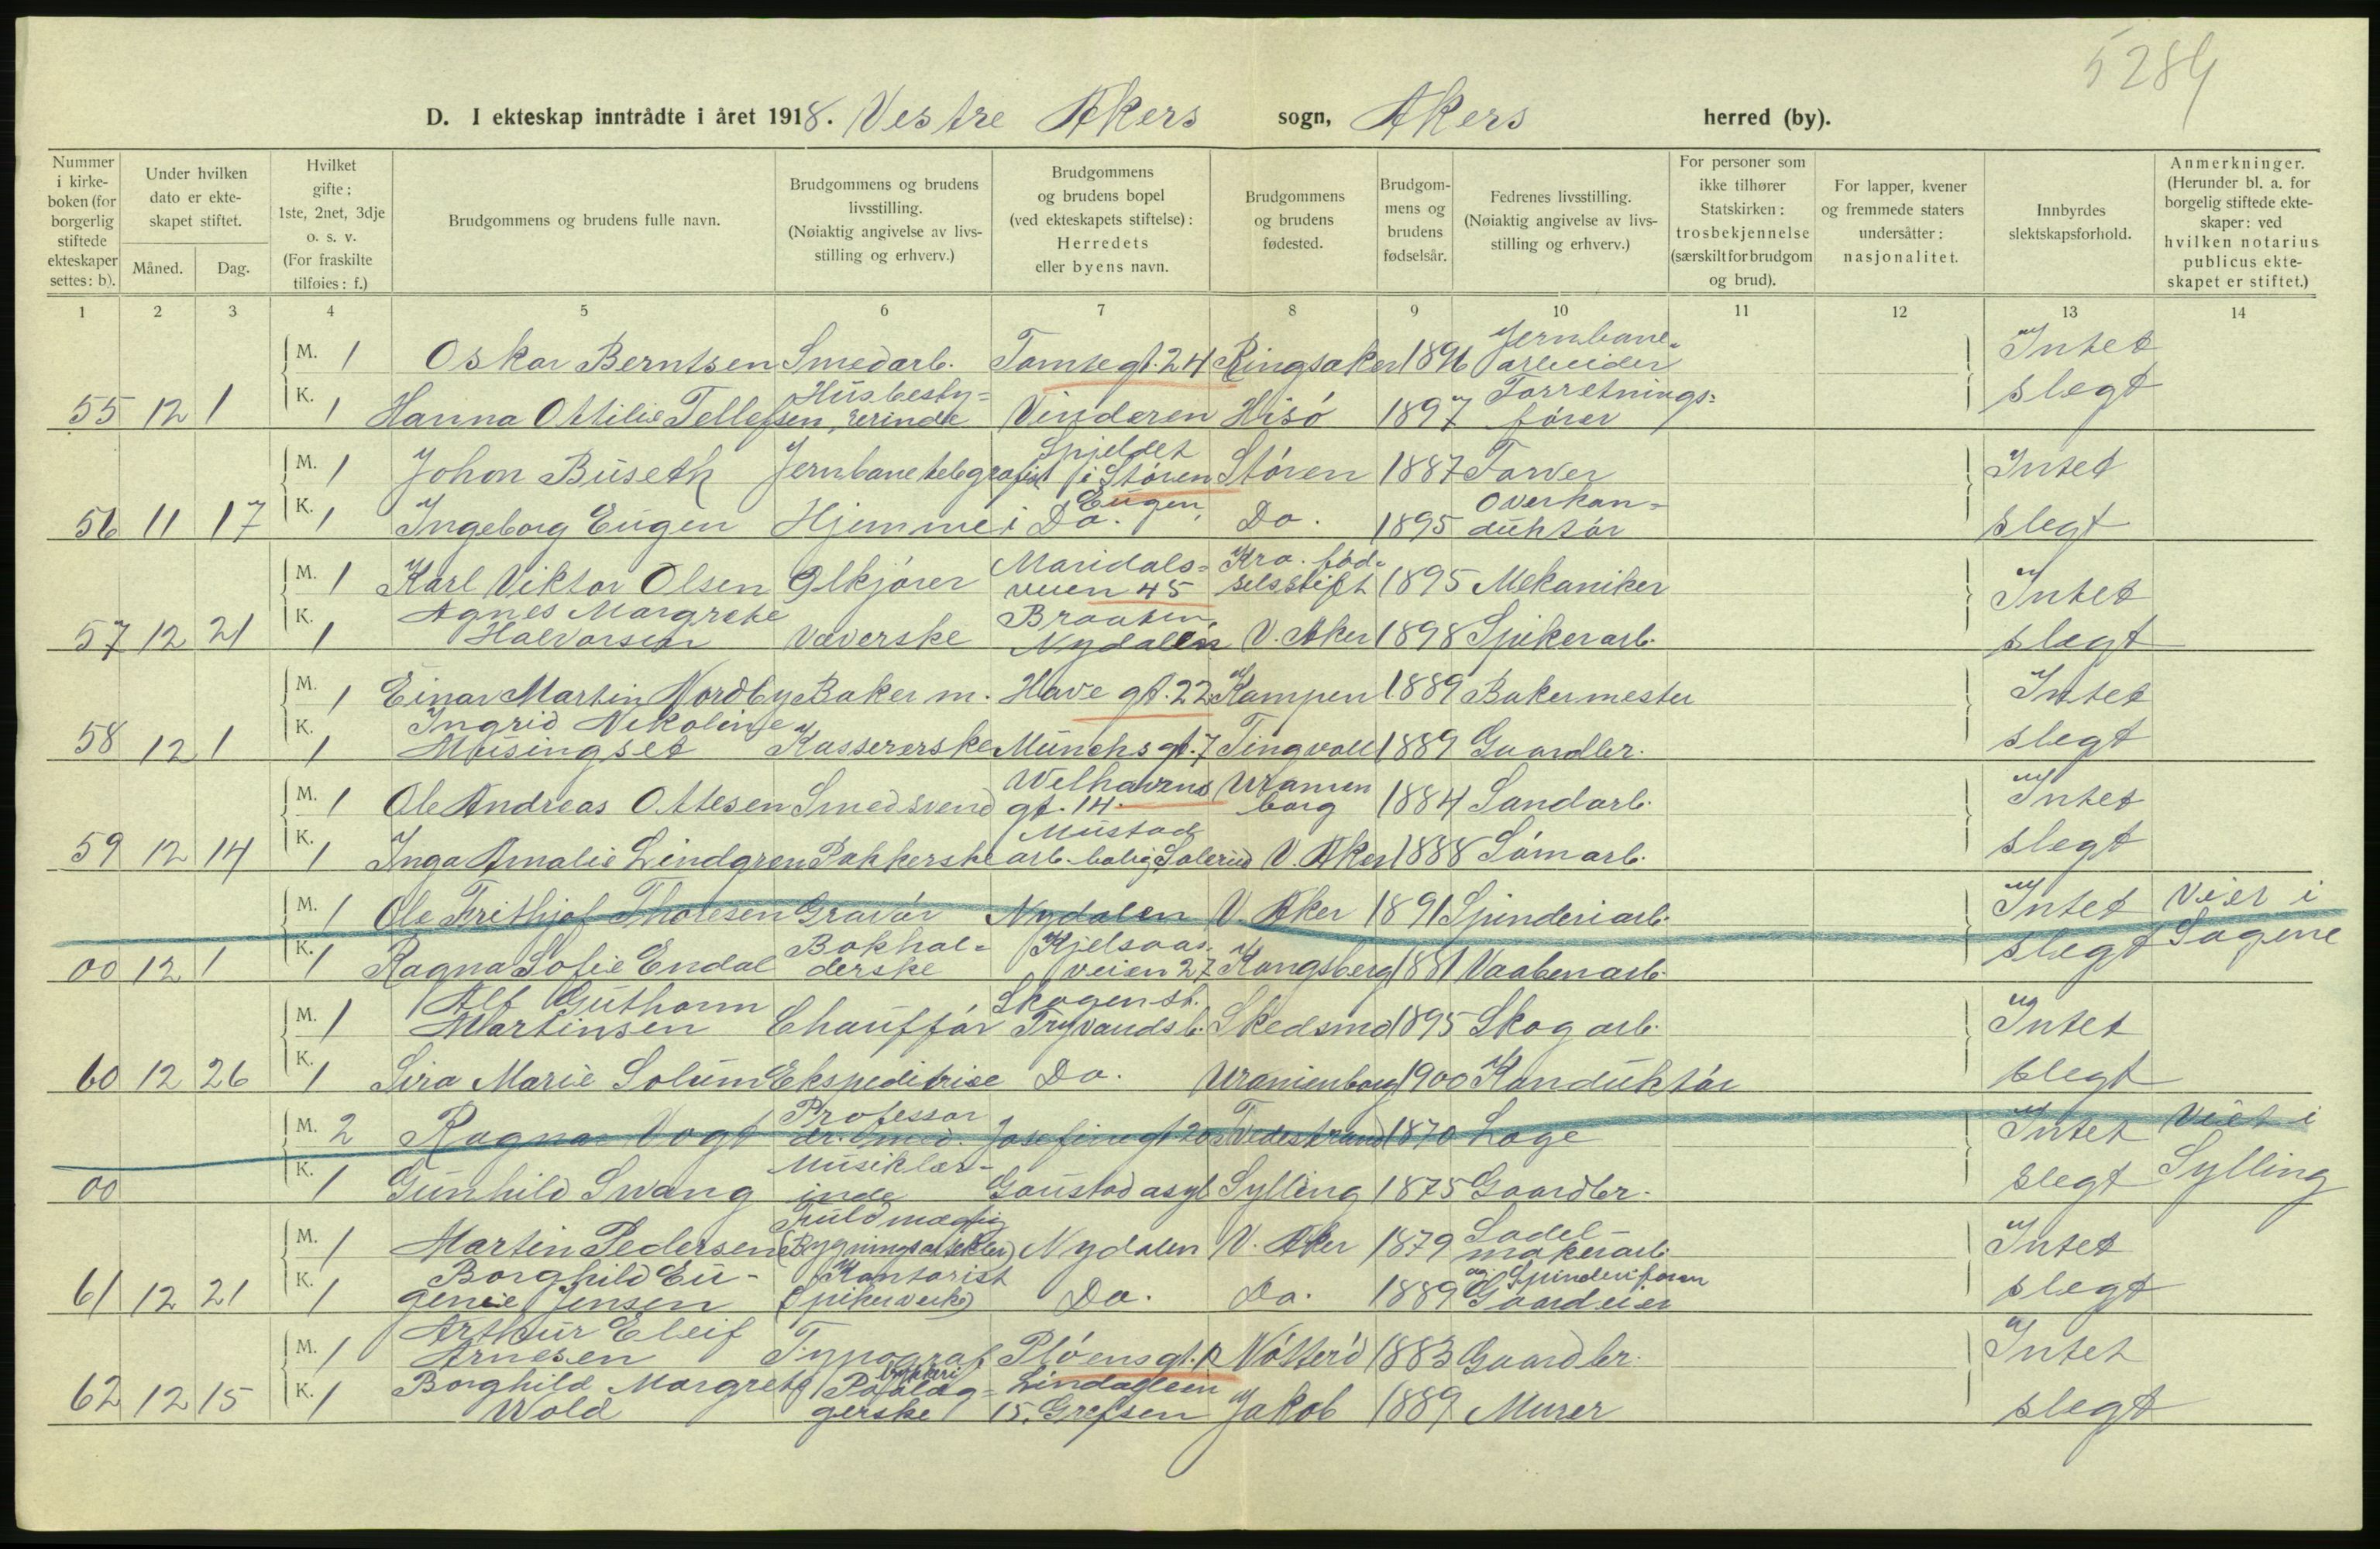 5284
D. I ekteskap inntrådte i året 1918. Vestre Akers sogn, Akers herred (by).
Nummer i kirke-boken (for borgerlig stiftede ekteskaper settes: b).
Under hvilken dato er ekte-skapet stiftet.
Måned. Dag.
Hvilket gifte: 1ste, 2net, 3dje o. s. v. (For fraskilte tilføies: f.)
Brudgommens og brudens fulle navn.
Brudgommens og brudens livsstilling. (Nøiaktig angivelse av livs-stilling og erhverv.)
Brudgommens og brudens bopel (ved ekteskapets stiftelse): Herredets eller byens navn.
Brudgommens og brudens fødested.
Brudgom-mens og brudens fødselsår.
Fedrenes livsstilling. (Nøiaktig angivelse av livs-stilling og erhverv.)
For personer som ikke tilhører Statskirken: trosbekjennelse (særskilt for brudgom og brud).
For lapper, kvener og fremmede staters undersåtter: nasjonalitet.
Innbyrdes slektskapsforhold.
Anmerkninger. (Herunder bl. a. for borgelig stiftede ekte-skaper: ved hvilken notarius publicus ekte-skapet er stiftet.)
1 2 3 4 5 6 7 8 9 10 11 12 13 14
M. 1 Oskar Berntsen Smedarb. Tomtegt. 24 Ringsaker 1896 Jernbane-arbeider Intet
55 12 1 K. 1 Hanna Ottilie Tellefsen Husbesty-rerinde Vinderen Hisö 1897 Forretnings-förer slegt
M. 1 Johon Buseth Jernbanetelegrafist Spjeldet i Stören Stören 1887 Farver Intet
56 11 17 K. 1 Ingeborg Eugen Hjemme Eugen, i Do. Do. 1895 Overkon-duktör slegt
M. 1 Karl Viktor Olsen Ølkjører Maridals-veien 45 Kra. fød-selsstift 1895 Mekaniker Intet
57 12 21 K. 1 Agnes Margrethe Halvorsen Væverske Braaten, Nydalen V. Aker 1898 Spikerarb. slegt
M. 1 Einar Martin Nordby Baker m. Have gt. 22 Kampen 1889 Bakermester Intet
58 12 1 K. 1 Ingrid Nikoline Musingset Kassererske Munchs gt. 7 Tingvoll 1889 Gaardbr. slegt
M. 1 Ole Andreas Ottesen Smedsvend Welhavens gt. 14. Uranienborg 1884 Sandarb. Intet
59 12 14 K. 1 Inga Amalie Lindgren Pakkerske Mustad arb.bolig Solerud V. Aker 1888 Sömarb. slegt
M. 1 Ole Frithjof Thoresen Gravör Nydalen V. Aker 1891 Spinderiarb. Intet Viet i
00 12 1 K. 1 Ragna Sofie Endal Bokhol-derske Kjelsaas-veien 27 Kongsberg 1881 Vaabenarb. slegt Sagene
M. 1 Alf Guthorm Martinsen Chaufför Skogen st. Tryvandsb. Skedsmo 1895 Skogarb. Intet
60 12 26 K. 1 Sira Marie Solum Ekspeditrise Do. Uranienborg 1900 Konduktör slegt
M. 2 Ragnar Vogt Professor dr. med. Josefinegt 20 Tvedestrand 1870 Læge Intet Viet i
00 K. 1 Gunhild Svang Musiklær-inde Gaustad asyl Sylling 1875 Gaardbr. slegt Sylling
M. 1 Martin Pedersen Fuldmægtig Nydalen V. Aker 1879 Sadel-makerarb. Intet
61 12 21 K. 1 Borghild Eu-genie Jensen Kontorist (Spikerverk) Do. Do. 1889 Gaardeier slegt
M. 1 Arthur Eleif Arnesen Typograf Plöensgt. Nötterö 1883 Gaardbr. Intet
62 12 15 K. 1 Borghild Margrethe Wold trykkeri Paalæg-gerske 15, Grefsen Jakob 1889 Murer slegt